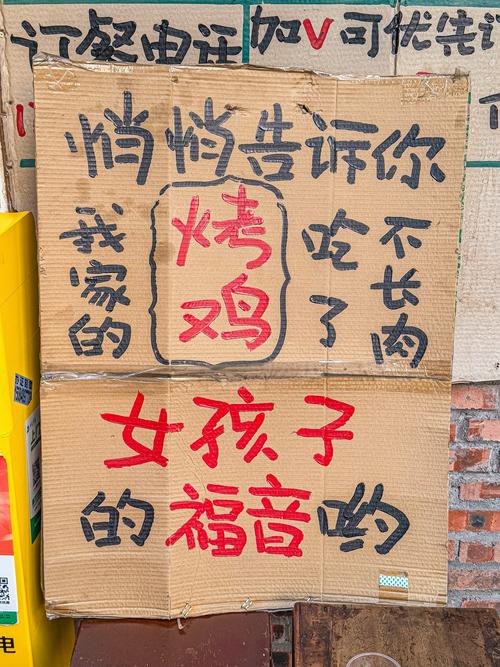 订餐电话
加V可优先
悄悄告诉你
我家的
烤鸡
吃了
不长肉
女孩子
的福音哟
电